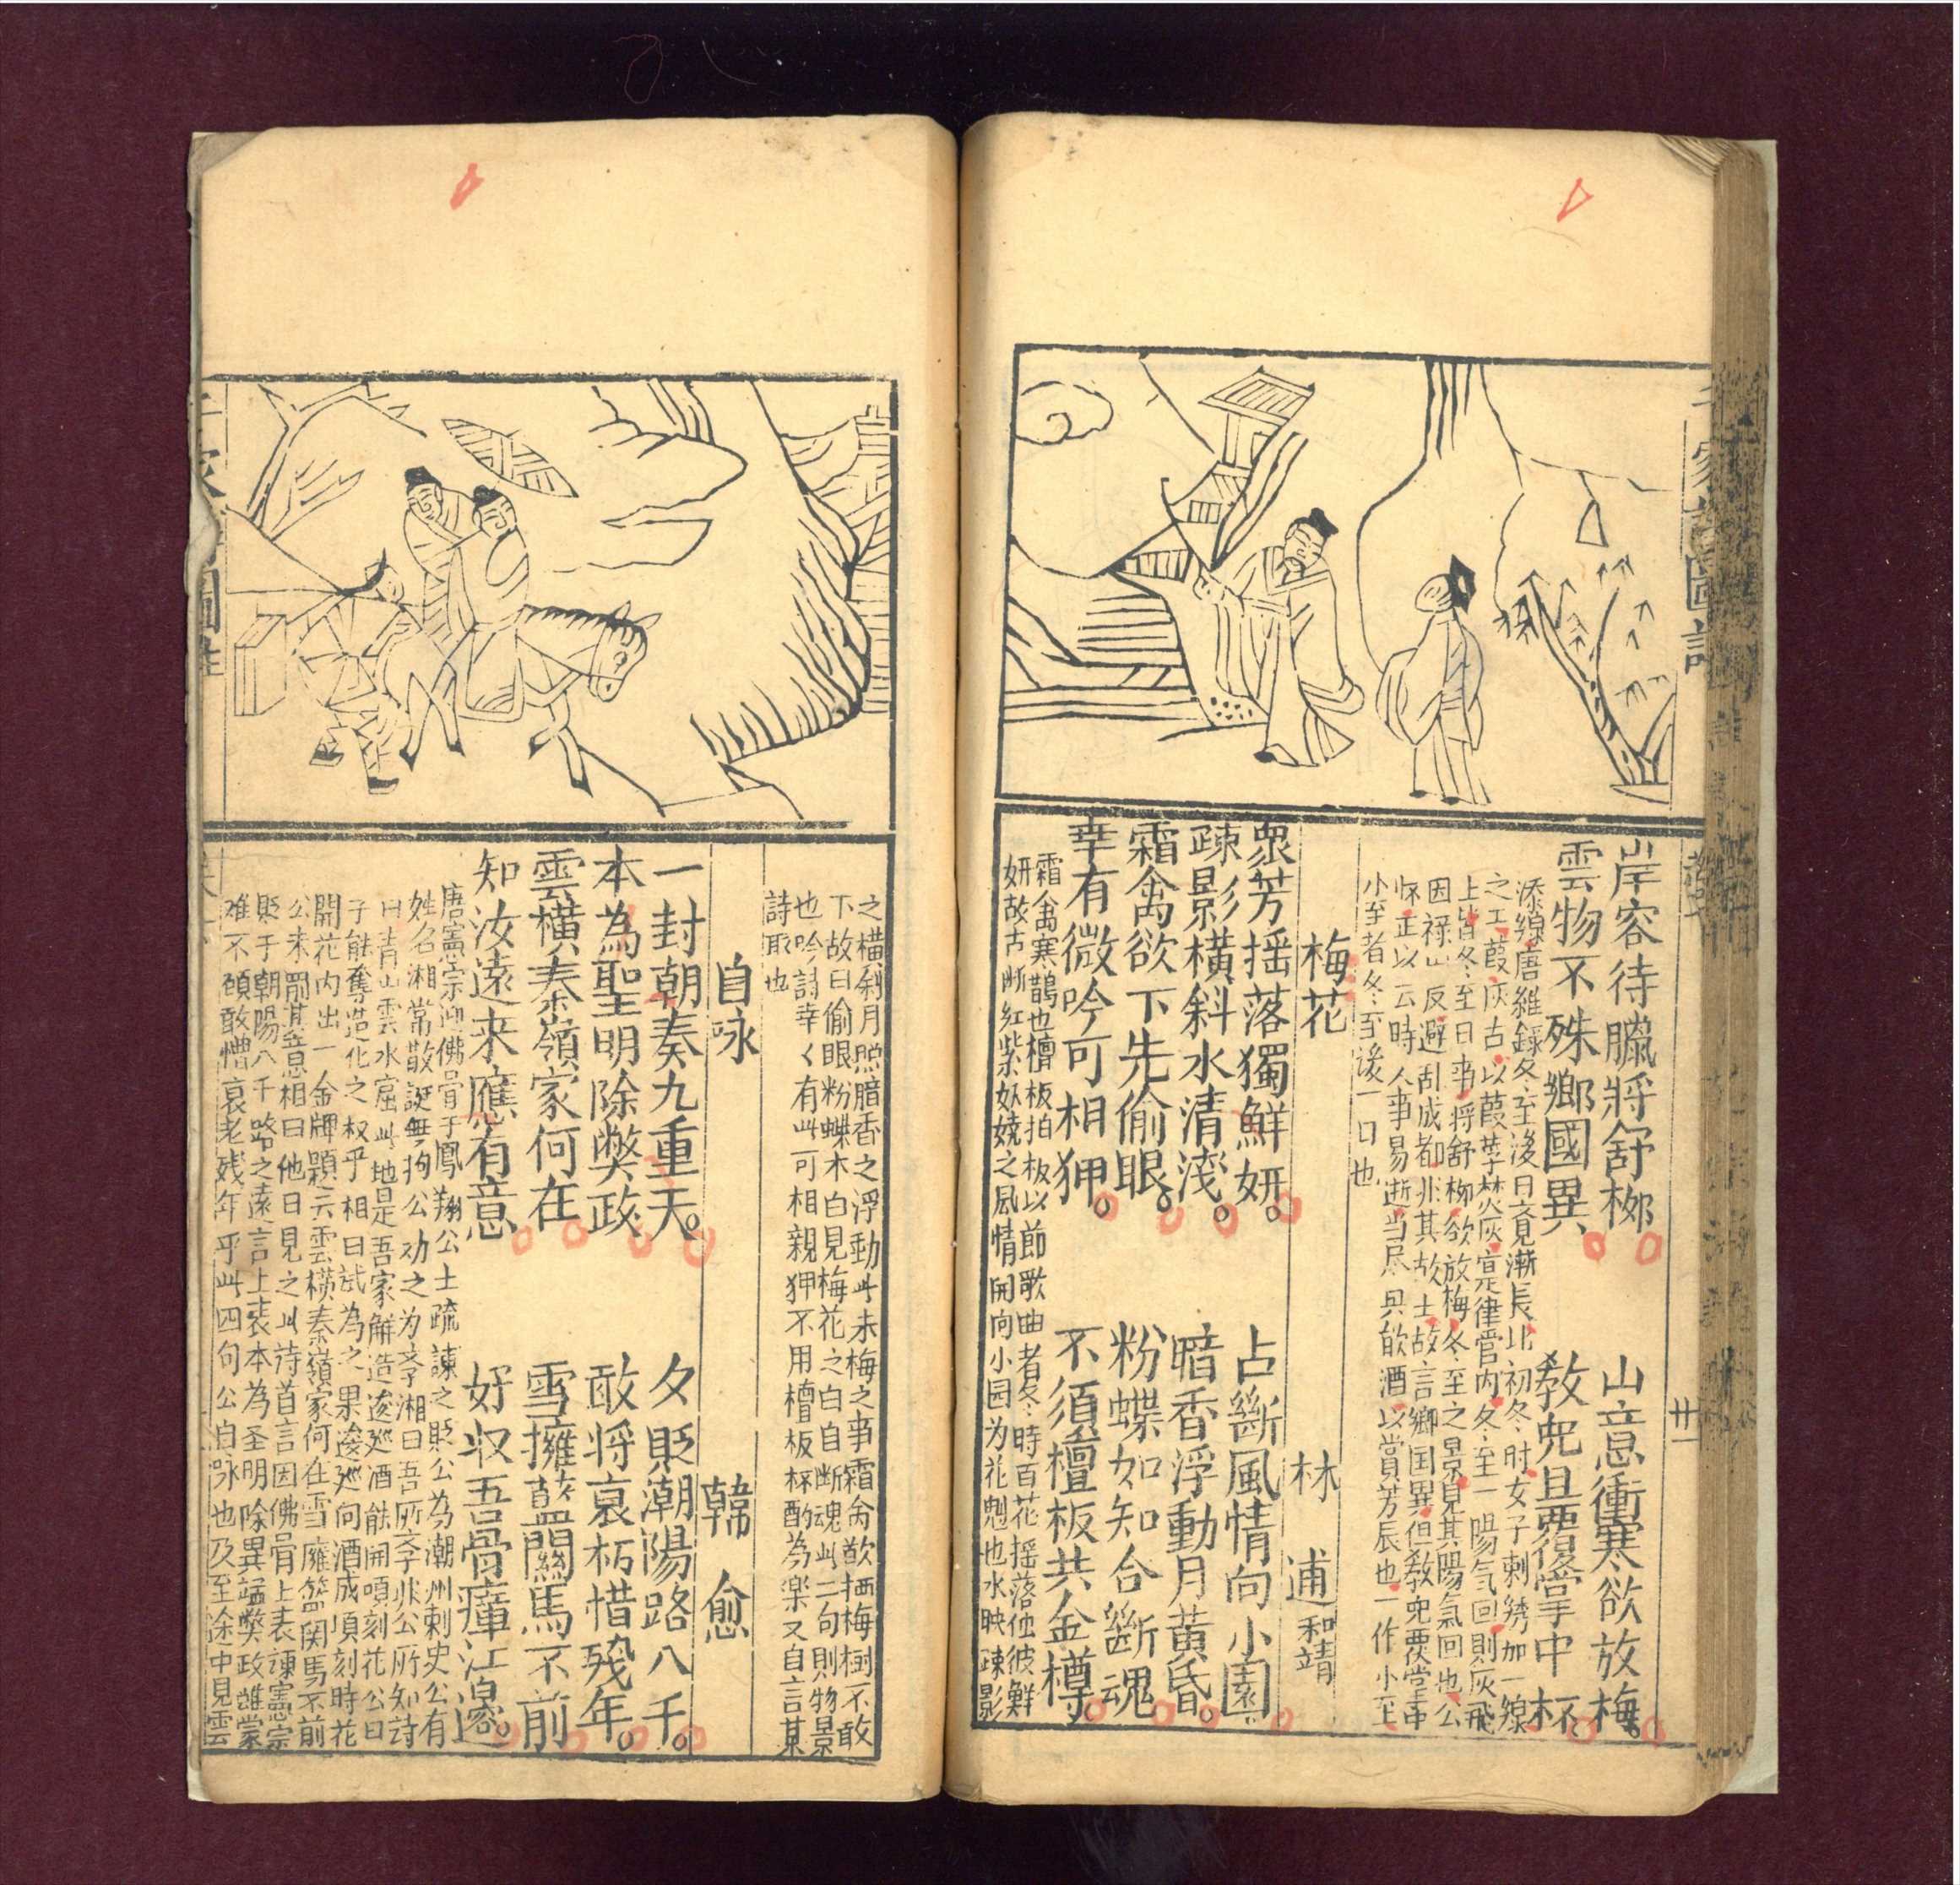 千家詩圖註
廿一
岸容待臘將舒桞 山意衝寒欲放梅
雲物不殊鄉國異 教児且覆掌中杯
添線唐雜錄冬至後日晷漸長比初冬时女子刺綉加一線
之工葭灰古以葭莩焚灰寔律管内冬至一陽气回則灰飛
上皆冬至日事将舒柳欲放梅冬至之景見其陽氣回也公
因禄山反避乱成都非其故土故言鄉国異但教児覆掌中
杯正以云時人事易逝当尽兴飲酒以賞芳辰也一作小至
小至者冬至後一日也
梅花 林逋和靖
衆芳揺落獨鮮妍 占斷風情向小園
疎影橫斜水清淺 暗香浮動月黄昏
霜禽欲下先偷眼 粉蝶如知合斷魂
幸有微吟可相狎 不須檀板共金樽
霜禽寒鵲也檀板拍板以節歌曲者冬時百花揺落独彼鮮
妍故古断红紫妖娆之風情開向小园为花魁也水映疎影
之橫斜月照暗香之浮動此未梅之事霜禽欲栖梅樹不敢
下故曰偷眼粉蝶木白見梅花之白自断魂此二句則物景
也吟詩幸〻有此可相親狎不用檀板杯酌為楽又自言其
詩取也
自咏 韓愈
一封朝奏九重天 夕貶潮陽路八千
本為聖明除弊政 敢将衰朽惜殘年
雲橫秦嶺家何在 雪擁藍關馬不前
知汝遠来應有意 好収吾骨瘴江邉
唐憲宗迎佛骨于鳳翔公士疏諫之貶公為潮州刺史公有
姓名湘常散誕無拘公劝之为斈湘曰吾所斈非公所知詩
曰青山雲水窟此地是吾家解造逡廵酒能開頃刻花公曰
子能奪造化之权乎相曰試為之果逡廵向酒成項刻時花
開花内出一金牌題云雲横秦嶺家何在雪擁篮関馬不前
公未罰其意相曰他日見之此诗首言因佛骨上表諫憲宗
貶于朝陽八千路之遠言上表本為圣明除異端弊政雖蒙
难不顧敢憎衰老残年乎此四句公自咏也及至途中見雲